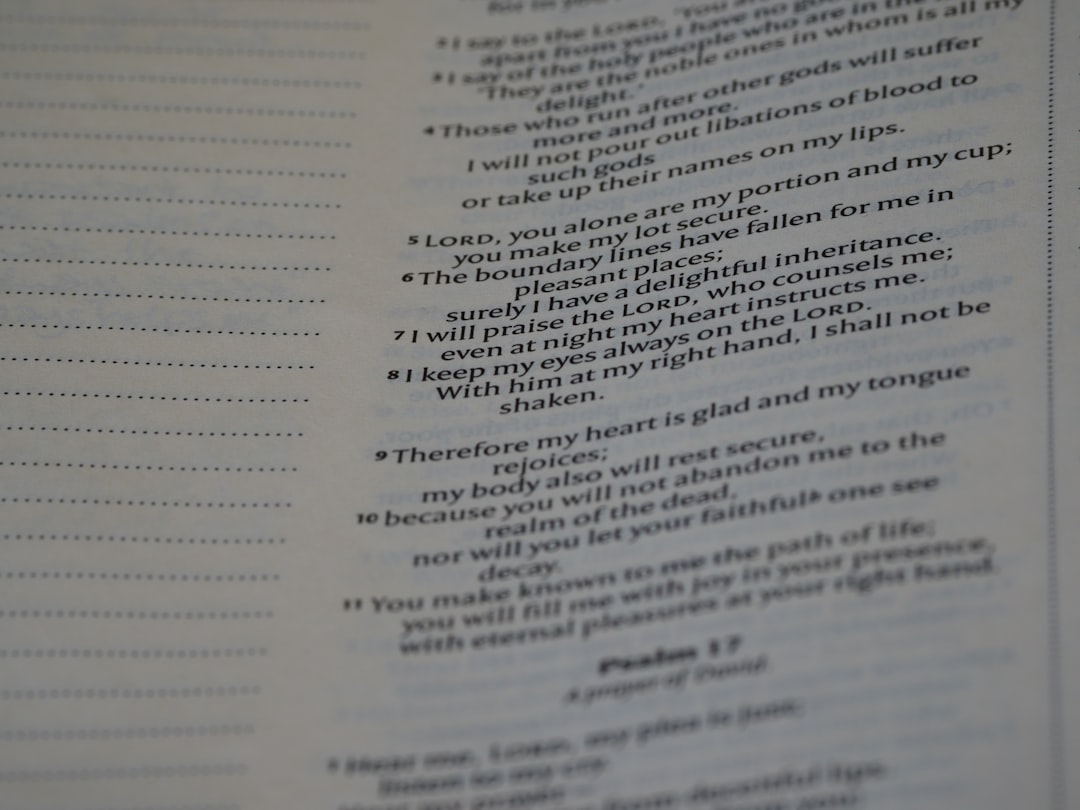 ² I say to the LORD, "You are
apart from you I have no good
³ I say of the holy people who are in the
"They are the noble ones in whom is all my
delight."
⁴ Those who run after other gods will suffer
more and more.
I will not pour out libations of blood to
such gods
or take up their names on my lips.
⁵ LORD, you alone are my portion and my cup;
you make my lot secure.
⁶ The boundary lines have fallen for me in
pleasant places;
surely I have a delightful inheritance.
⁷ I will praise the LORD, who counsels me;
even at night my heart instructs me.
⁸ I keep my eyes always on the LORD.
With him at my right hand, I shall not be
shaken.
⁹ Therefore my heart is glad and my tongue
rejoices;
my body also will rest secure,
¹⁰ because you will not abandon me to the
realm of the dead,
nor will you let your faithfulᵇ one see
decay.
¹¹ You make known to me the path of life;
you will fill me with joy in your presence,
with eternal pleasures at your right hand.
Psalm 17
A prayer of David.
¹ Hear me, LORD, my plea is just;
listen to my cry.
from deceitful lips.